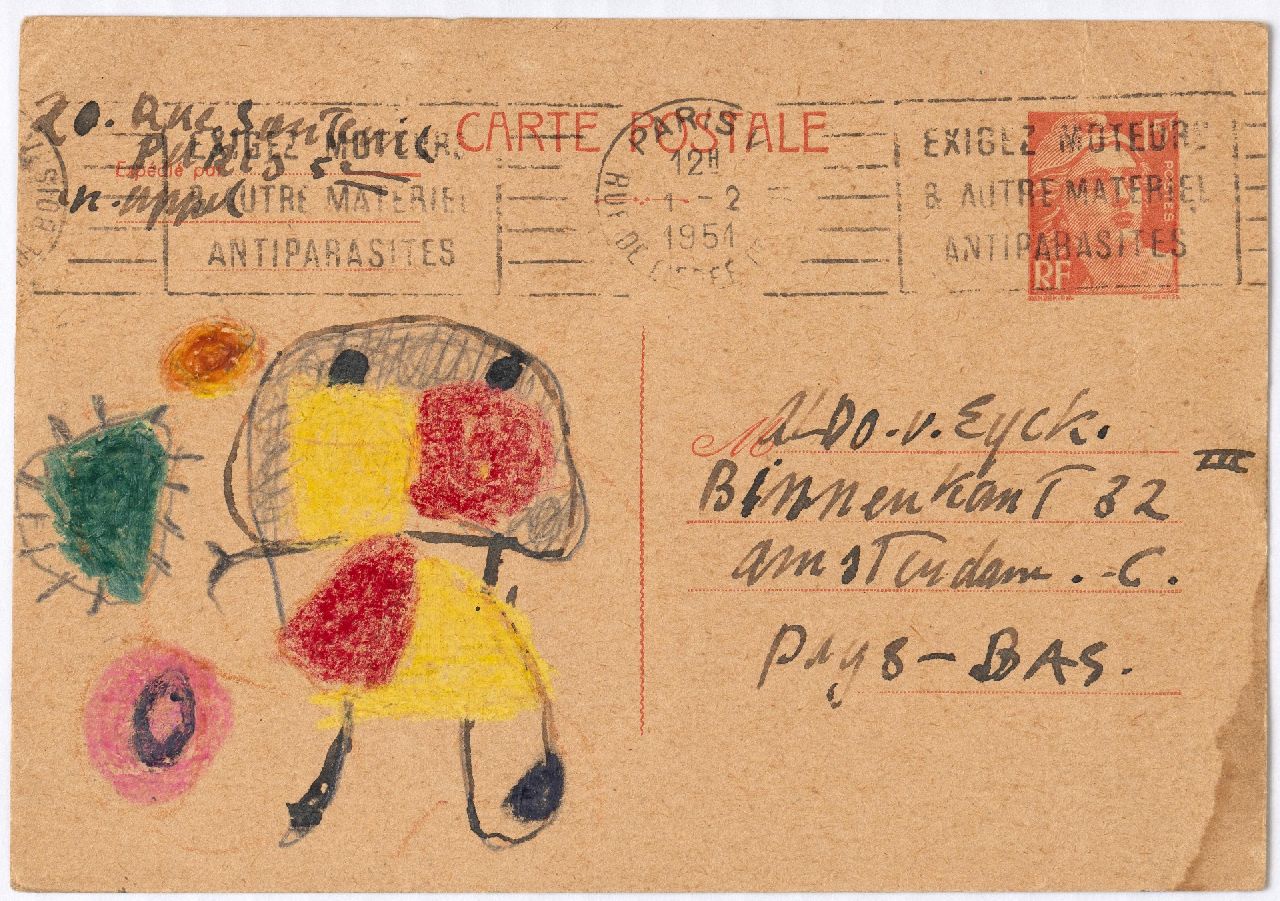 20. Rue Santeuil
PARIS 5e
K. Appel
Expédié par
CARTE POSTALE
EXIGEZ MOTEURS
& AUTRE MATERIEL
ANTIPARASITES
PARIS
12H
1 - 2
1951
RUE DE
EXIGEZ MOTEURS
& AUTRE MATERIEL
ANTIPARASITES
15F
POSTES
RF
M
ALDO.v.Eyck.
Binnenkant 32 III
amsterdam.-C.
Pays-BAS.